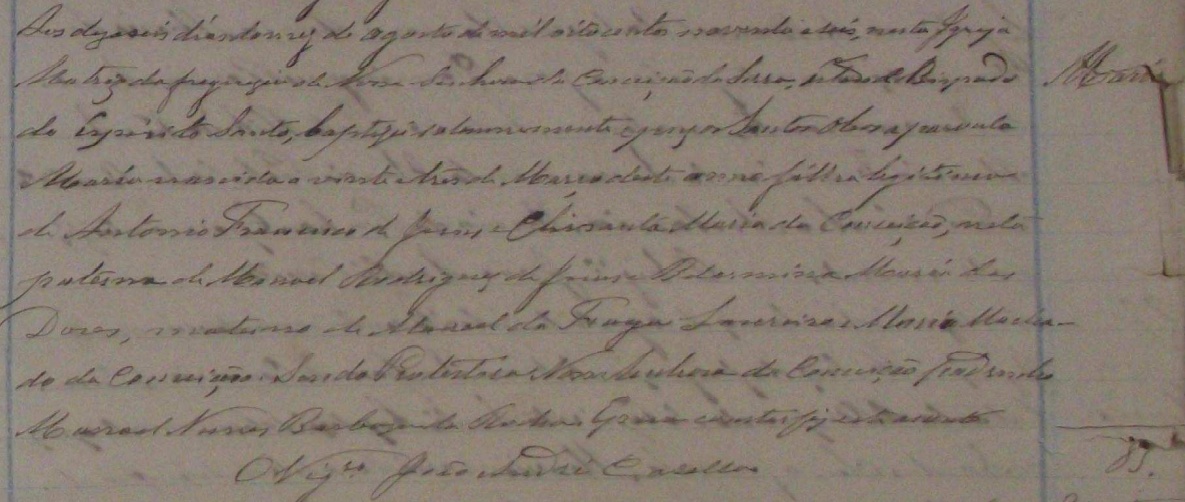 Aos dezaseis dias do mez de agosto de mil oitocentos noventa e seis, nesta Igreja
Matriz da freguezia de Nossa Senhora da Conceição da Serra, Bispado
Maria
do Espirito Santo, baptizei solemnemente e puz os Santos Oleos a parvula
Maria nascida a vinte e tres de Março deste anno filha legitima
de Antonio Francisco de Jesus e Maria da Conceição, neta
paterna de Manoel Rodrigues de Jesus e Maria das
Dores, materna de Manoel da Fraga Loureiro e Maria Macha-
do da Conceição. Sendo Protectora Nossa Senhora da Conceição padrinho
Manoel Nunes Barboza da Rocha. E para constar fiz este assento
85.
O Vigro João